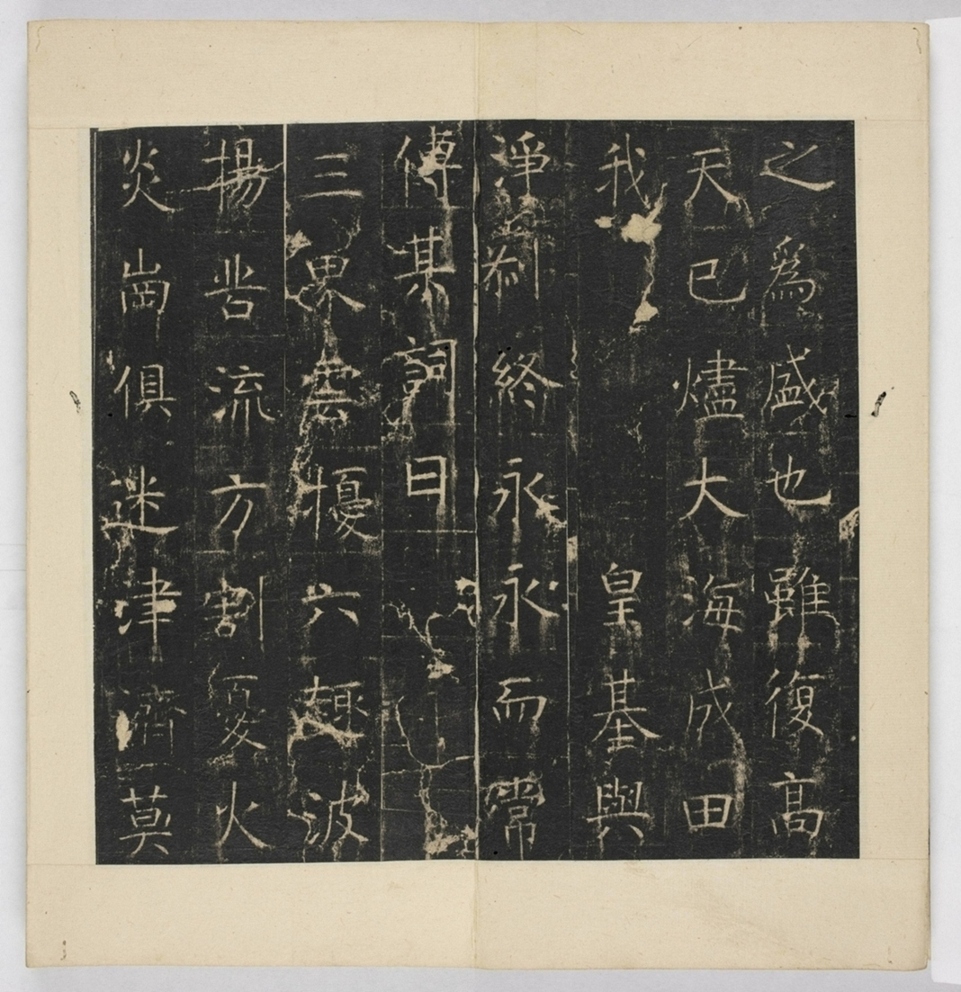 之爲盛也雖復高
天已燼大海成田
我皇基與
淨齋終永永而常
傅其詞曰
三界雲擾六趣波
揚苦流方割憂火
炎崗俱迷津濟莫